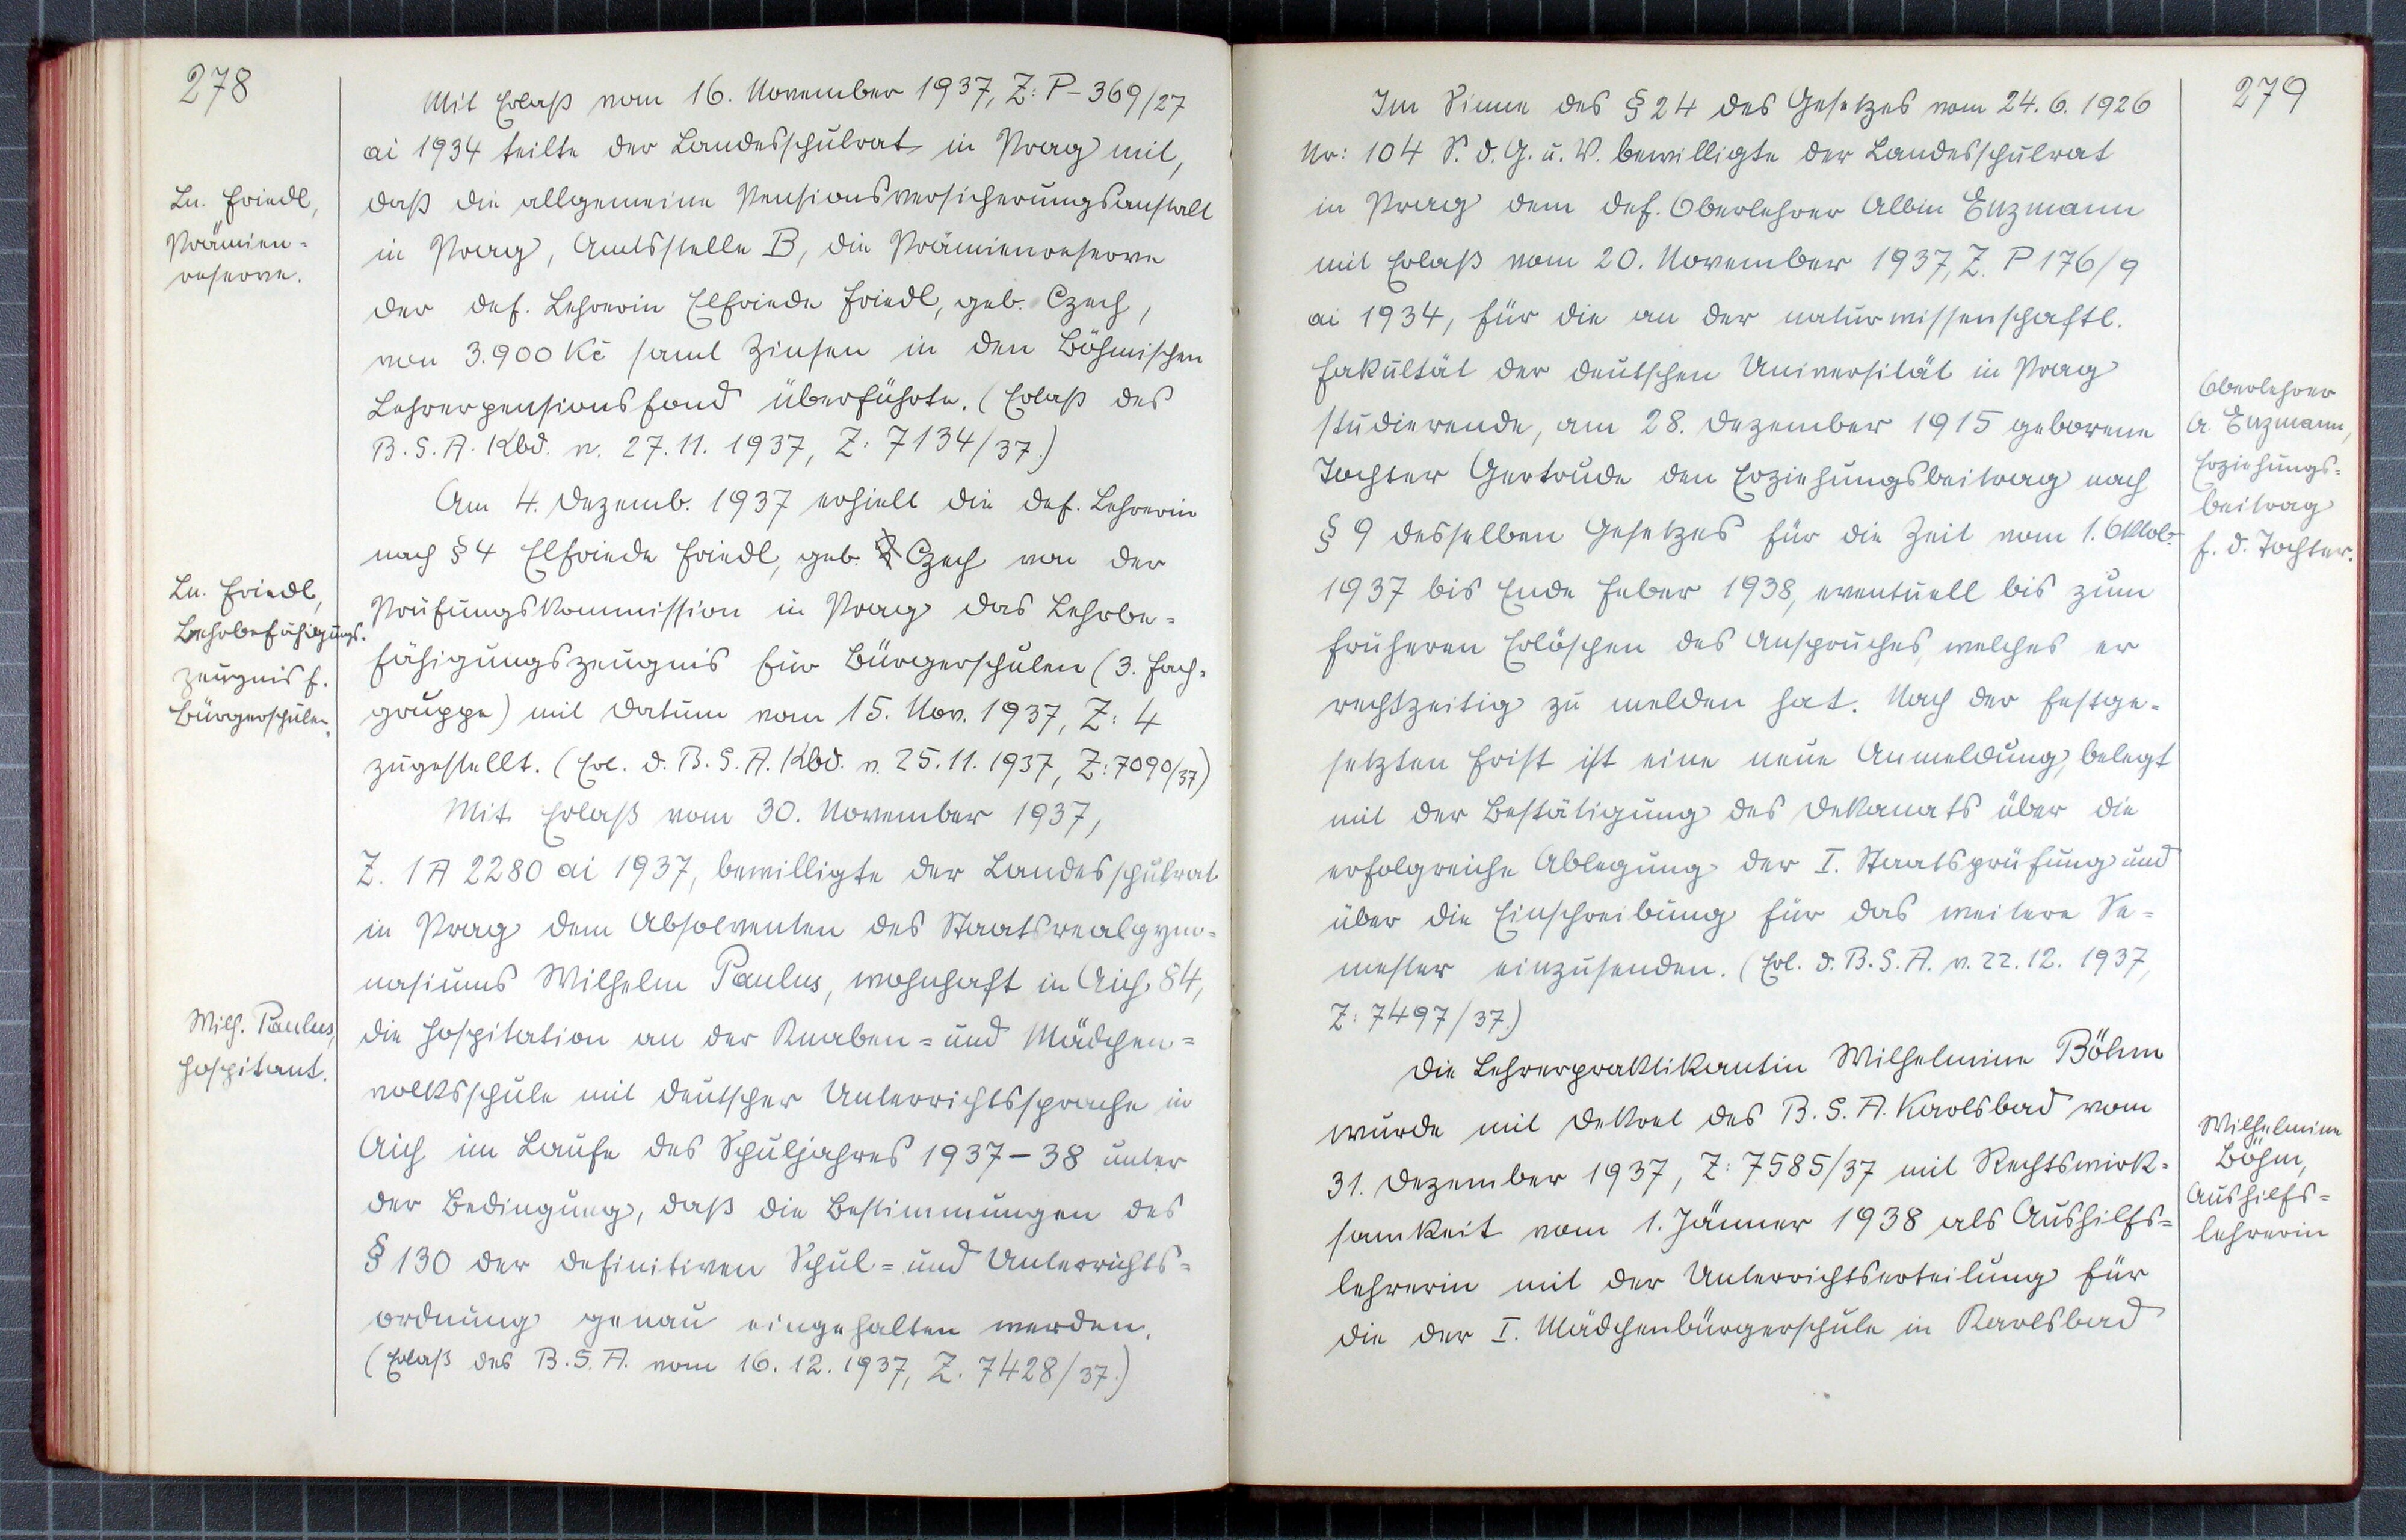 278
Mit Erlaß vom 16. November 1937, Z: P-369/27
ai 1934 teilte der Landesschulrat in Prag mit,
daß die allgemeine Pensionsversicherungsanstalt
in Prag, Amtsstelle B, die Prämienreserve
der def. Lehrerin Elfriede Friedl, geb. Czech,
von 3.900 Kč samt Zinsen in den Böhmischen
Lehrerpensionsfond überführte. (Erlaß des
B.S.A. Kbd. v. 27.11.1937, Z: 7134/37.)
Am 4. Dezemb. 1937 erhielt die def. Lehrerin
nach § 4 Elfriede Friedl, geb. Czech von der
Prüfungskommission in Prag das Lehrbe=
fähigungszeugnis für Bürgerschulen (3. Fach=
gruppe) mit Datum vom 15. Nov. 1937, Z: 4
zugestellt. (Erl. d. B.S.A. Kbd. v. 25.11.1937, Z: 7090/37)
Mit Erlaß vom 30. November 1937,
Z. 1A 2280 ai 1937, bewilligte der Landesschulrat
in Prag dem Absolventen des Staatsrealgym=
nasiums Wilhelm Paulus, wohnhaft in Aich 84,
die Hospitation an der Knaben= und Mädchen=
volksschule mit deutscher Unterrichtssprache in
Aich im Laufe des Schuljahres 1937–38 unter
der Bedingung, daß die Bestimmungen des
§ 130 der definitiven Schul= und Unterrichts=
ordnung genau eingehalten werden.
(Erlaß des B.S.A. vom 16.12.1937, Z. 7428/37.)
Ln. Friedl,
Prämien=
reserve.
Ln. Friedl,
Lehrbefähigungs.
zeugnis f.
Bürgerschulen.
Wilh. Paulus,
Hospitant.
279
Im Sinne des § 24 des Gesetzes vom 24.6.1926
Nr: 104 S. d. G. u. V. bewilligte der Landesschulrat
in Prag dem def. Oberlehrer Albin Enzmann
mit Erlaß vom 20. November 1937, Z. P 176/9
ai 1934, für die an der naturwissenschaftl.
Fakultät der deutschen Universität in Prag
studierende, am 28. Dezember 1915 geborene
Tochter Gertrude den Erziehungsbeitrag nach
§ 9 desselben Gesetzes für die Zeit vom 1. Oktob.
1937 bis Ende Feber 1938, eventuell bis zum
früheren Erlöschen des Anspruches, welches er
rechtzeitig zu melden hat. Nach der festge=
setzten Frist ist eine neue Anmeldung, belegt
mit der Bestätigung des Dekanats über die
erfolgreiche Ablegung der I. Staatsprüfung und
über die Einschreibung für das weitere Se=
mester einzusenden. (Erl. d. B.S.A. v. 22.12.1937,
Z: 7497/37.)
Die Lehrerpraktikantin Wilhelmine Böhm
wurde mit Dekret des B.S.A. Karlsbad vom
31. Dezember 1937, Z: 7585/37 mit Rechtswirk=
samkeit vom 1. Jänner 1938 als Aushilfs=
lehrerin mit der Unterrichtserteilung für
die der I. Mädchenbürgerschule in Karlsbad
Oberlehrer
A. Enzmann,
Erziehungs=
beitrag
f. d. Tochter.
Wilhelmine
Böhm,
Aushilfs=
lehrerin